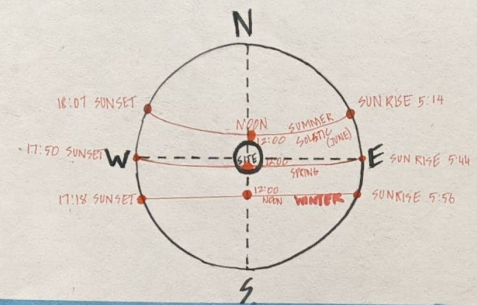 N
18:07 SUNSET
SUN RISE 5:14
NOON
12:00
SUMMER
SOLSTIC (JUNE)
17:50 SUNSET
W
SITE
12:00
SPRING
E
SUN RISE 5:44
17:18 SUNSET
12:00
NOON
WINTER
SUNRISE 5:56
S